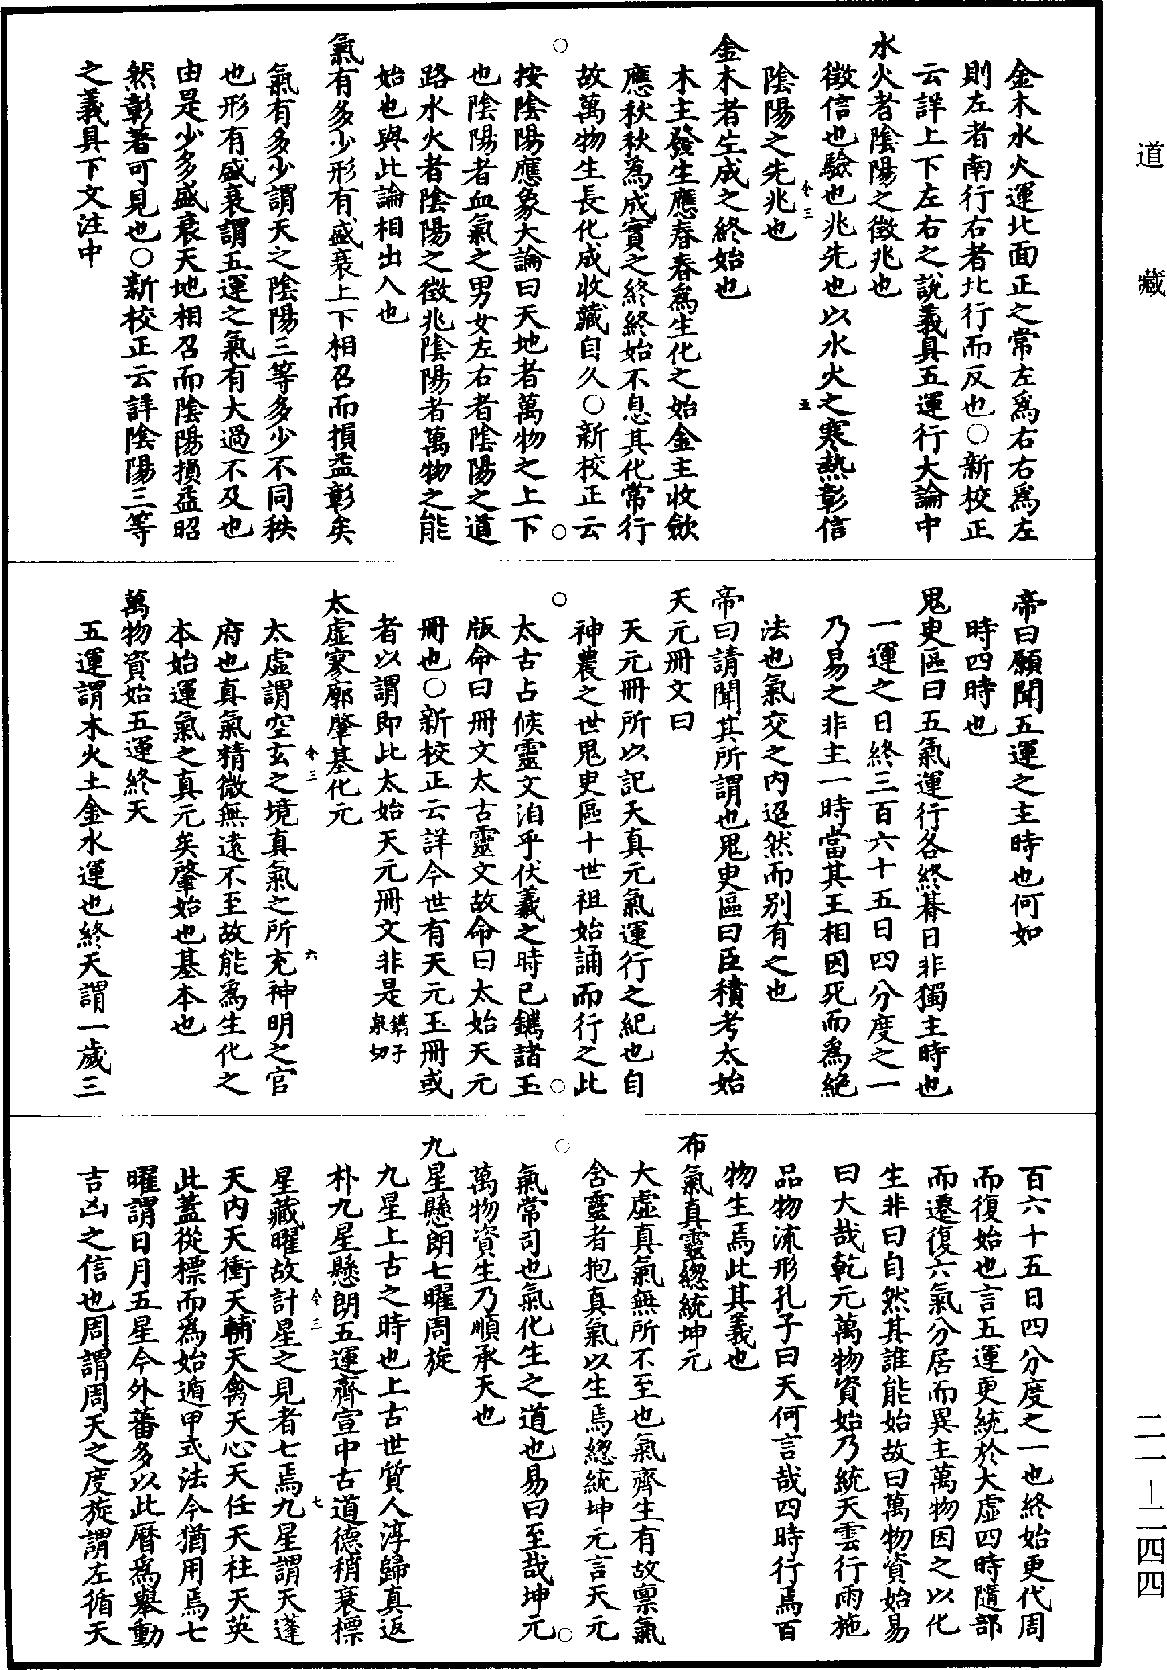 道藏
金木水火運北面正之常左爲右右爲左
則左者南行右者北行而反也○新校正
云詳上下左右之說義具五運行大論中
水火者陰陽之徵兆也
徵信也驗也兆先也以水火之寒熱彰信
陰陽之先兆也
金木者生成之終始也
木主發生應春春爲生化之始金主收斂
應秋秋爲成實之終終始不息其化常行
故萬物生長化成收藏自久○新校正云
按陰陽應象大論曰天地者萬物之上下
也陰陽者血氣之男女左右者陰陽之道
路水火者陰陽之徵兆陰陽者萬物之能
始也與此論相出入也
氣有多少形有盛衰上下相召而損益彰矣
氣有多少謂天之陰陽三等多少不同秩
也形有盛衰謂五運之氣有大過不及也
由是少多盛衰天地相召而陰陽損益昭
然彰著可見也○新校正云詳陰陽三等
之義具下文注中
帝曰願聞五運之主時也何如
時四時也
鬼臾區曰五氣運行各終朞日非獨主時也
一運之日終三百六十五日四分度之一
乃易之非主一時當其王相囚死而爲絶
法也氣交之內迢然而別有之也
帝曰請聞其所謂也鬼臾區曰臣積考太始
天元冊文曰
天元冊所以記天真元氣運行之紀也自
神農之世鬼臾區十世祖始誦而行之此
太古占候靈文洎乎伏羲之時已鐫諸玉
版命曰冊文太古靈文故命曰太始天元
冊也○新校正云詳今世有天元玉冊或
者以謂即此太始天元冊文非是鐫子泉切
太虛寥廓肇基化元
太虛謂空玄之境真氣之所充神明之宮
府也真氣精微無遠不至故能爲生化之
本始運氣之真元矣肇始也基本也
萬物資始五運終天
五運謂木火土金水運也終天謂一歲三
百六十五日四分度之一也終始更代周
而復始也言五運更統於大虛四時隨部
而遷復六氣分居而異主萬物因之以化
生非曰自然其誰能始故曰萬物資始易
曰大哉乾元萬物資始乃統天雲行雨施
品物流形孔子曰天何言哉四時行焉百
物生焉此其義也
布氣真靈緫統坤元
大虛真氣無所不至也氣齊生有故稟氣
含靈者抱真氣以生焉緫統坤元言天元
氣常司也氣化生之道也易曰至哉坤元
萬物資生乃順承天也
九星懸朗七曜周旋
九星上古之時也上古世質人淳歸真返
朴九星懸朗五運齊宣中古道德稍衰標
星藏曜故計星之見者七焉九星謂天蓬
天內天衝天輔天禽天心天任天柱天英
此蓋從標而爲始遁甲式法今猶用焉七
曜謂日月五星今外蕃多以此曆爲舉動
吉凶之信也周謂周天之度旋謂左循天
二一-二四四